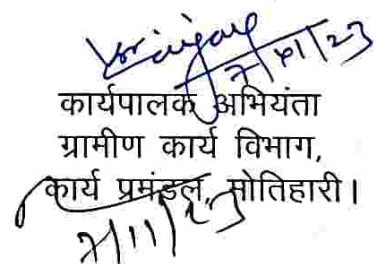 7/11/23
कार्यपालक अभियंता
ग्रामीण कार्य विभाग,
कार्य प्रमंडल, मोतिहारी।
7/11/23